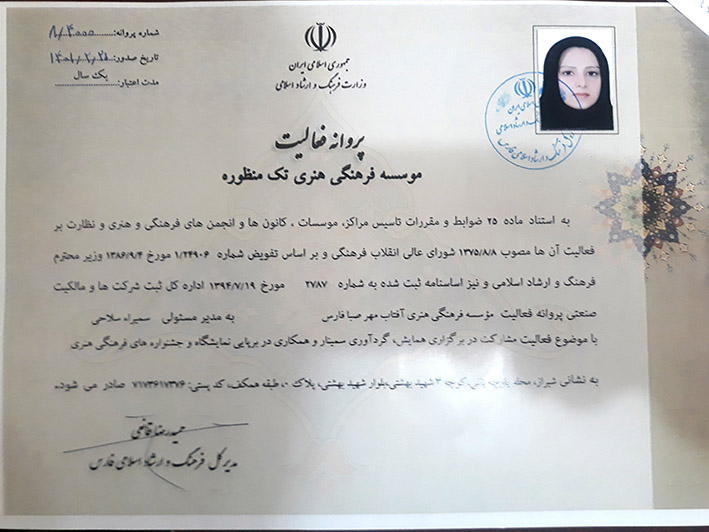 شماره پروانه: ۸/۴۰۰۰
تاریخ صدور: ۱۴۰۱/۲/۲۱
مدت اعتبار: یک سال
جمهوری اسلامی ایران
وزارت فرهنگ و ارشاد اسلامی
پروانه فعالیت
موسسه فرهنگی هنری تک منظوره
به استناد ماده ۲۵ ضوابط و مقررات تاسیس مراکز، موسسات ، کانون ها و انجمن های فرهنگی و هنری و نظارت بر
فعالیت آن ها مصوب ۱۳۷۵/۸/۸ شورای عالی انقلاب فرهنگی و بر اساس تفویض شماره ۱/۲۴۹۰۶ مورخ ۱۳۸۶/۹/۴ وزیر محترم
فرهنگ و ارشاد اسلامی و نیز اساسنامه ثبت شده به شماره ۲۷۸۷ مورخ ۱۳۹۴/۷/۱۹ اداره کل ثبت شرکت ها و مالکیت
صنعتی پروانه فعالیت مؤسسه فرهنگی هنری آفتاب مهر صبا فارس به مدیر مسئولی سمیراء سلاحی
با موضوع فعالیت مشارکت در برگزاری همایش، گردآوری سمینار و همکاری در برپایی نمایشگاه و جشنواره های فرهنگی هنری
به نشانی شیراز، محله کوچه ۳ شهید بهشتی، بلوار شهید بهشتی، پلاک ۰، طبقه همکف، کد پستی: ۷۱۷۳۶۱۷۳۷۶ صادر می شود.
حمیدرضا قانعی
مدیر کل فرهنگ و ارشاد اسلامی فارس